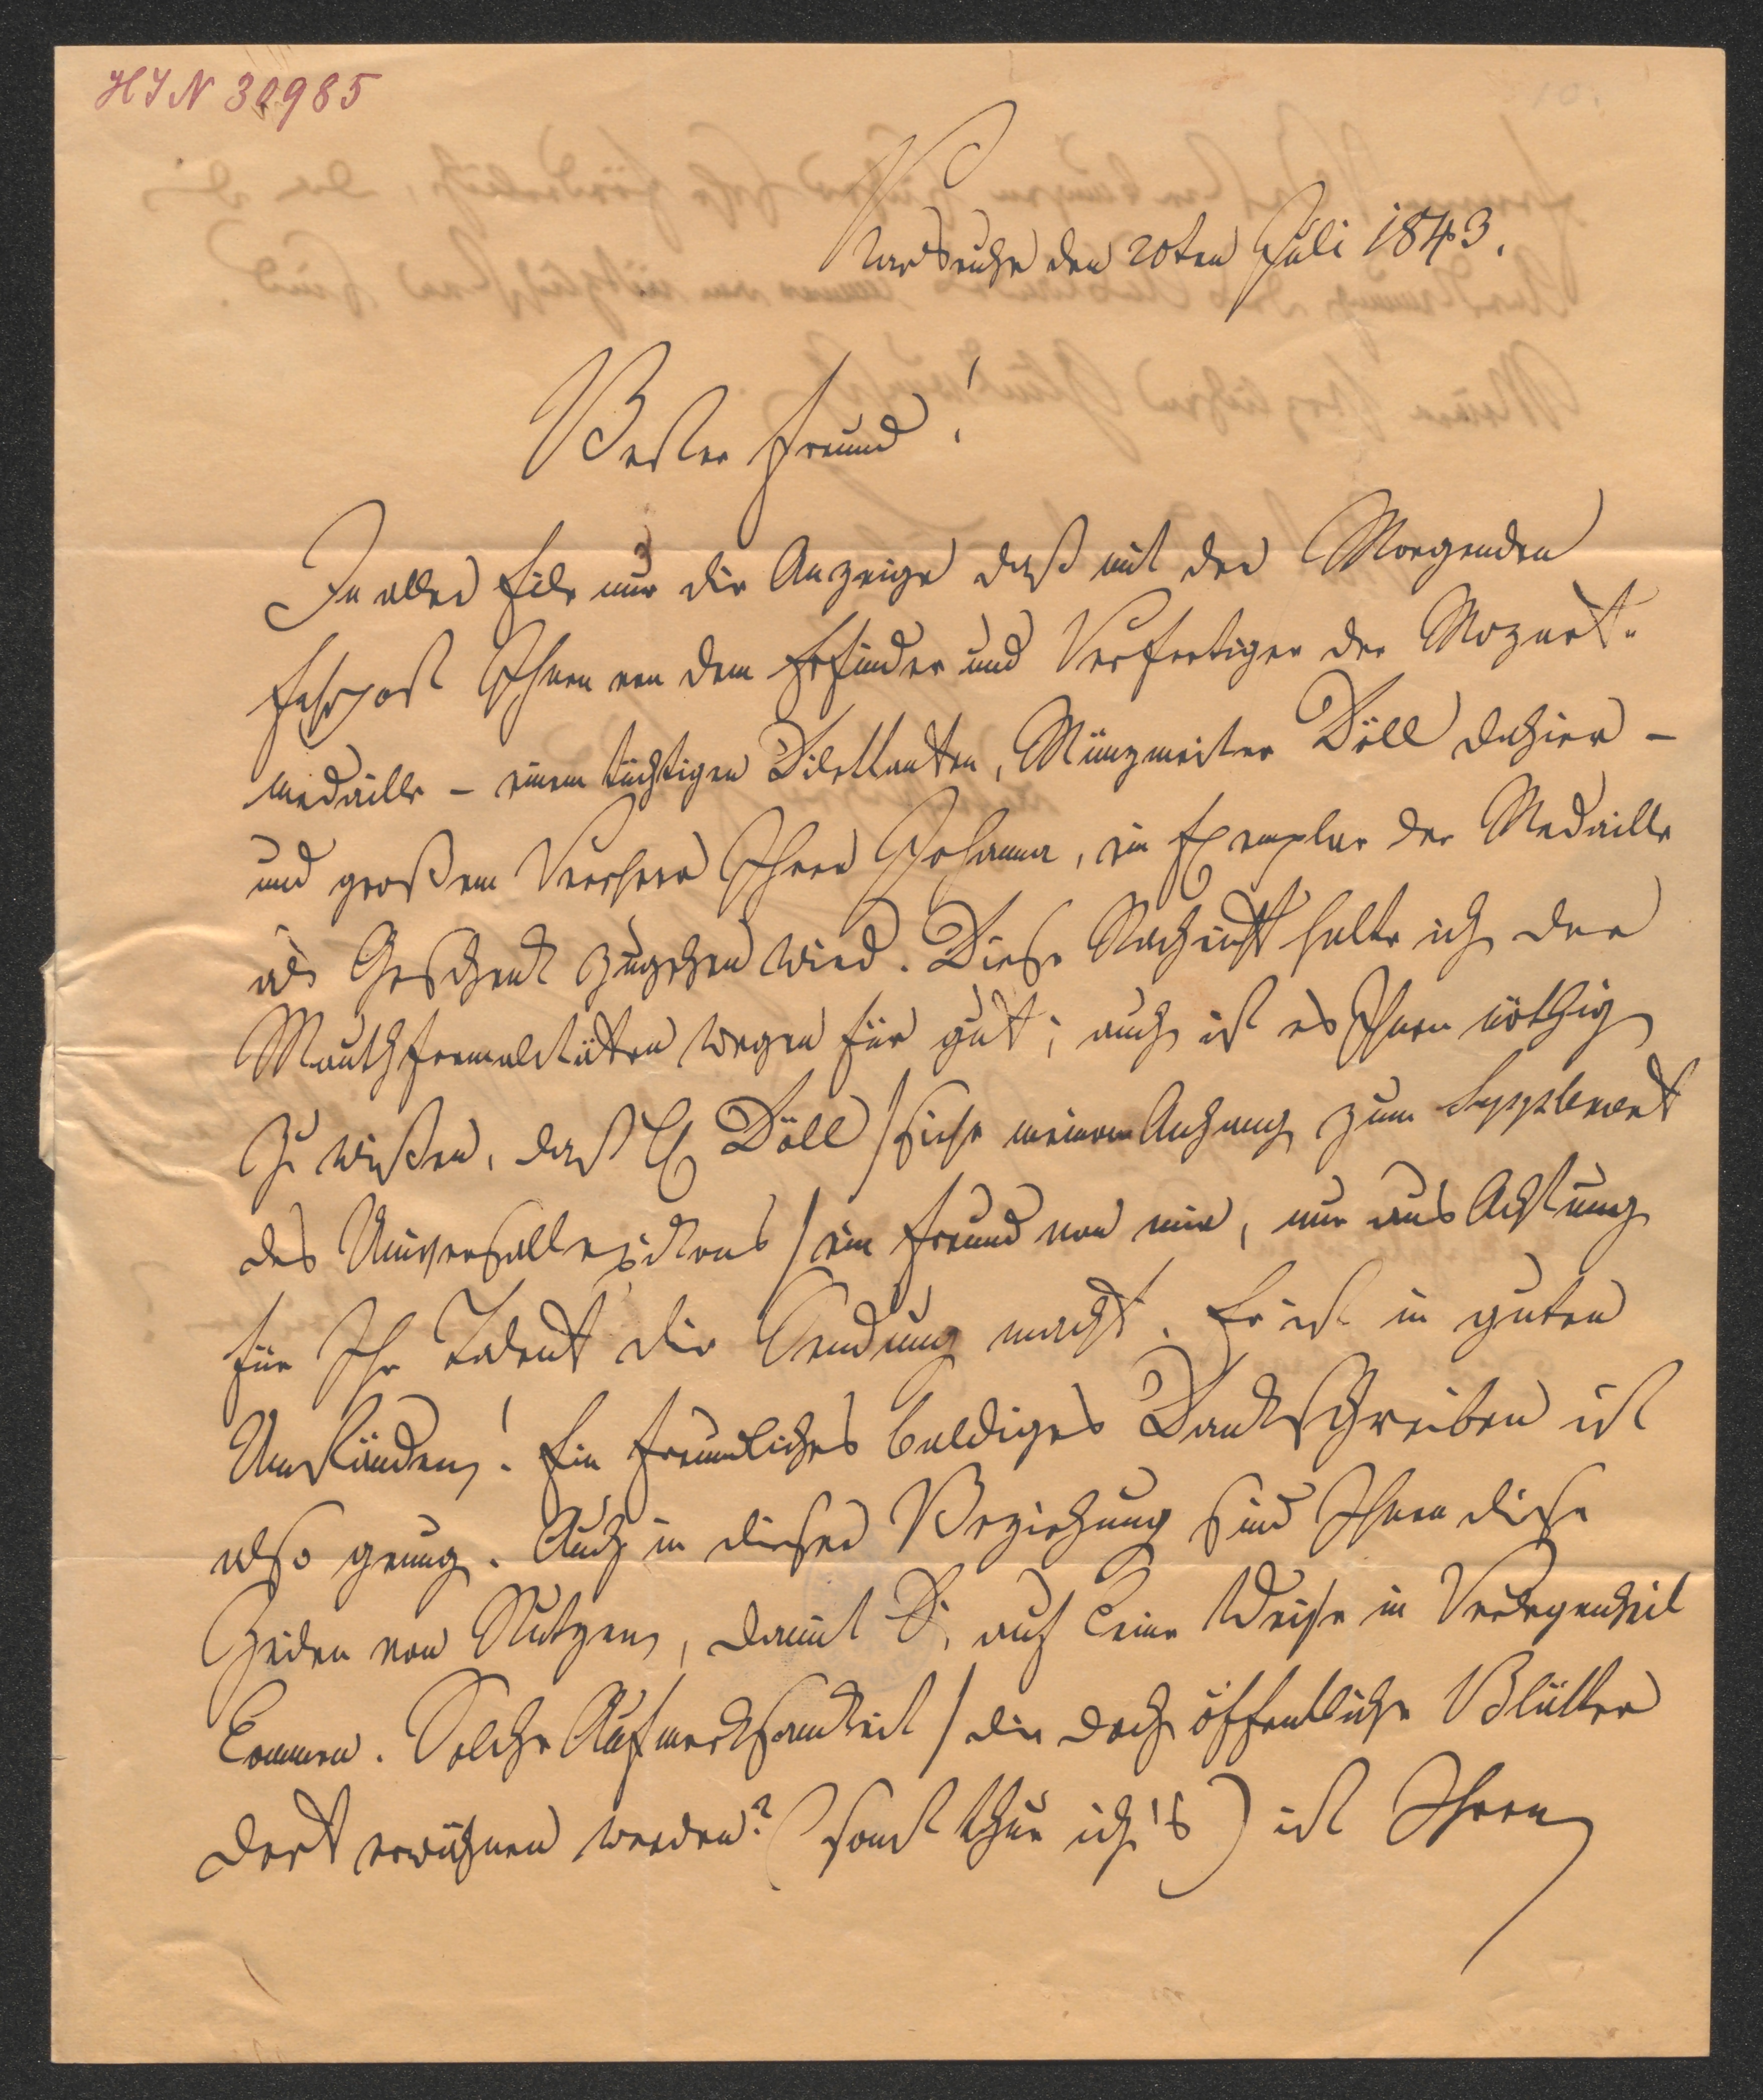 HIN 30985
Karlsruhe den 20ten Juli 1843.
Bester Freund!
In aller Eile nur die Anzeige daß mit der Morgenden
Fahrpost Ihnen von dem Erfinder und Verfertiger der Mozart-
medaille – einem tüchtigen Dilettanten, Münzmeister Döll dahier –
und großem Verehrer Ihrer Johanna, ein Exemplar der Medaille
als Geschenk zugehen wird. Diese Nachricht halte ich der
Mauthformalitäten wegen für gut; auch ist es Ihnen nöthig
zu wißen, daß H Döll /siehe meinem Anhang zum Supplement
des Universallexikons/ ein Freund von mir, nur aus Achtung
für Ihr Talent die Sendung macht. Er ist in guten
Umständen! Ein freundliches baldiges Dankschreiben ist
also genug. Auch in dieser Beziehung sind Ihnen diese
Zeilen von Nutzen, damit S. auf keine Weise in Verlegenheit
kommen. Solche Aufmerksamkeit /die doch öffentliche Blätter
dort erwähnen werden? (sonst thue ich's) ist Ihren